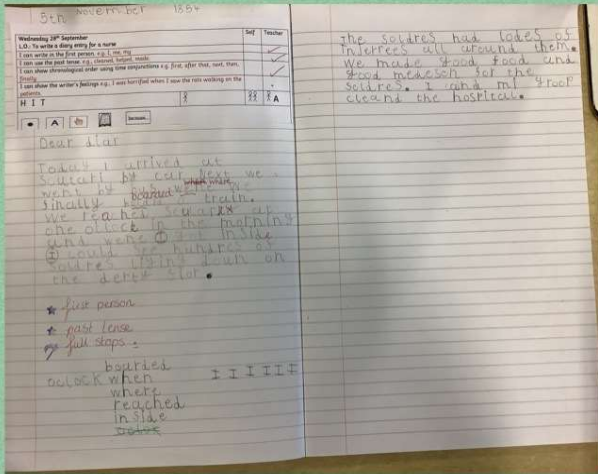 5th November 185
Self Teacher
Wednesday 29th September
L.O.: To write a diary entry for a nurse
I can write in the first person. e.g. I, me, my
I can use the past tense. e.g. cleaned, helped, made.
I can show chronological order using time conjunctions e.g. first, after that, next, then,
finally.
I can show the writer's feelings e.g. I was horrified when I saw the rats walking on the
patients.
H I T
A
Dear diar
Today I urrived at
Scutari by car. Next we
went by bus
finally boarded train.
we reached
one oclock in the morning
and went inside
I could see hundres of
soldres lying down on
the derty flor.
first person
past tense
full stops .
bourded
oclock when I I I I I I
where
reached
inside
the soldres had lodes of
injerrees all around them.
We made good food and
good medesen for the
soldres. I and mi groop
cleand the hospital.